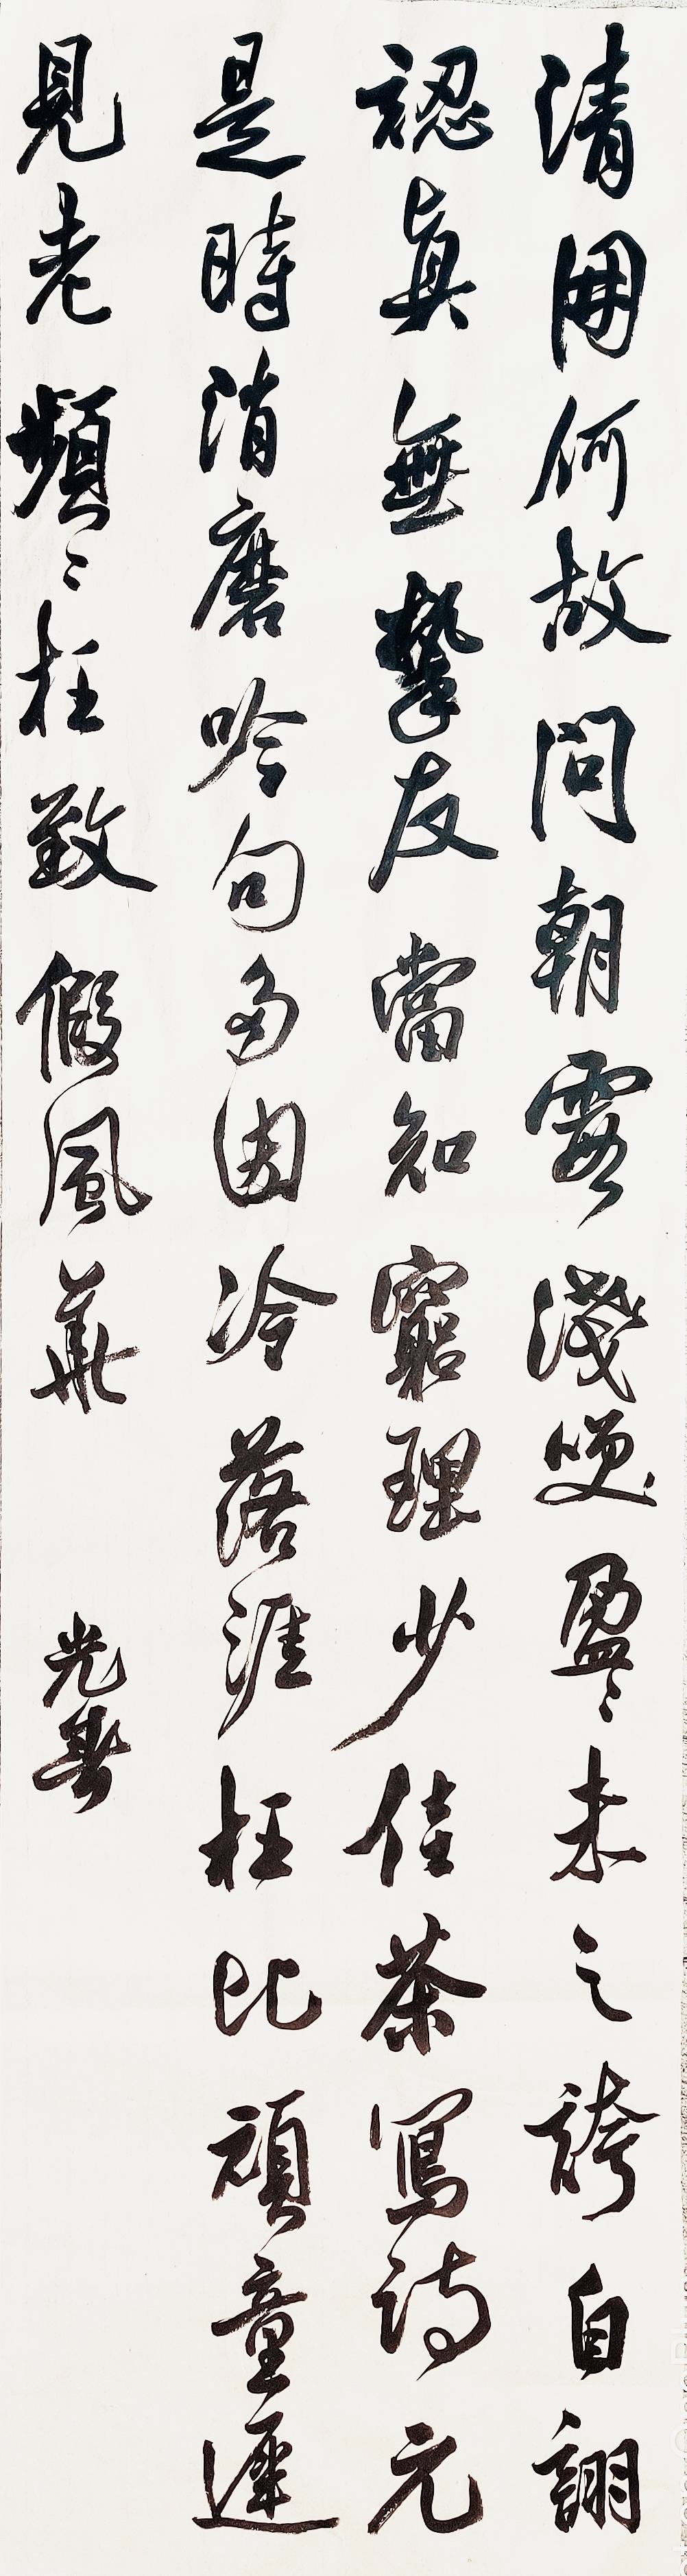 清何故問朝霞淺咲盈〻未之誇自詡
認真無摯友當知窮理少佳茶寫詩元
是時消磨吟句多因冷落涯枉比頑童遲
見老頻〻枉致假風華
光